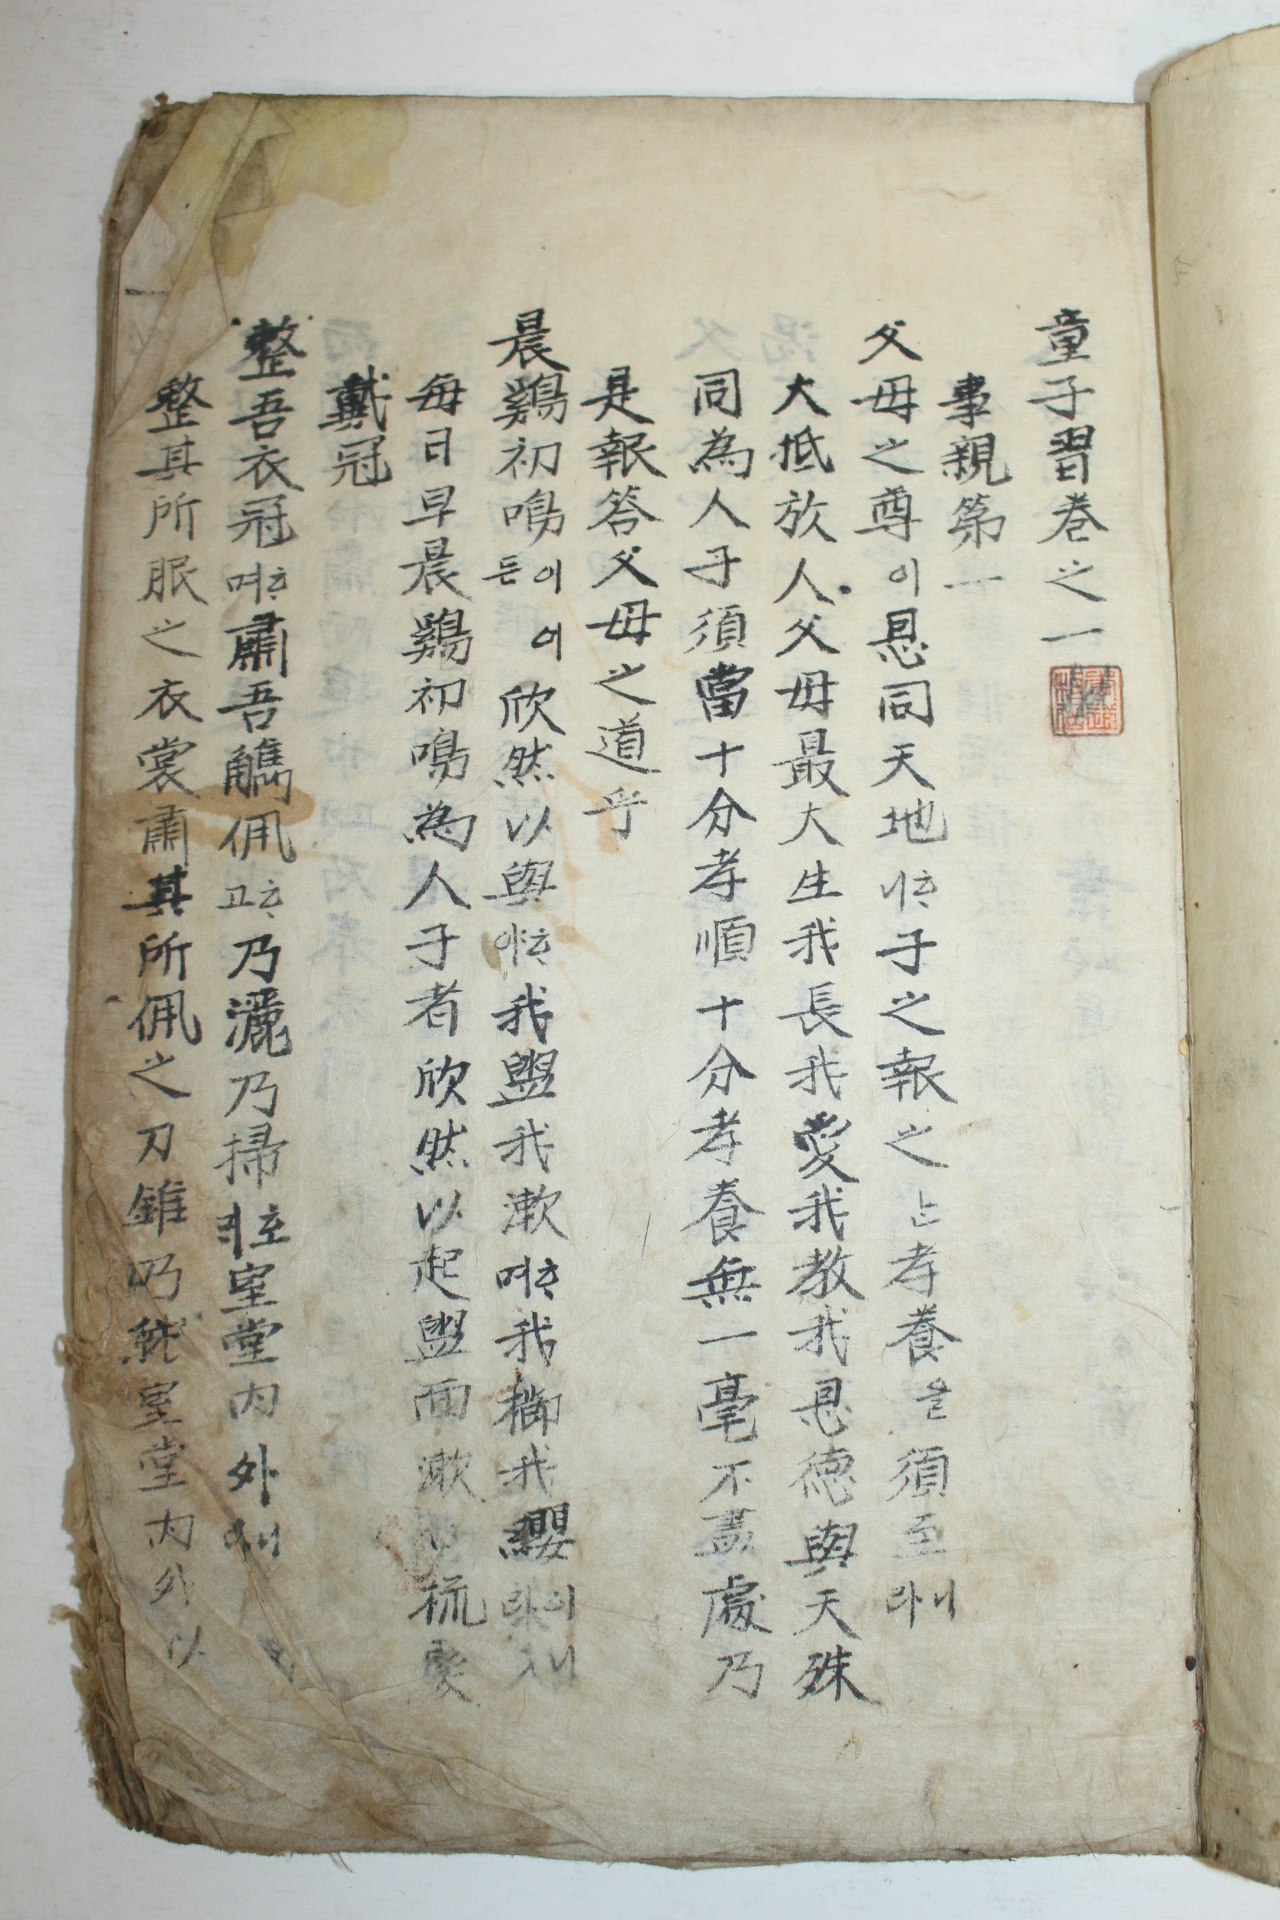 童子習卷之一
事親第一
父母之尊이恩同天地니立子之報之는孝養을須至라니
大抵放人父母最大生我長我愛我教我恩德與天殊
同為人子須當十分孝順十分孝養無一毫不盡處乃
是報答父母之道乎
晨鷄初鳴이든어欣然以興야立我盥我漱며立我櫛我纓
每日早晨鷄初鳴為人子者欣然以起盥面漱口梳髮
戴冠
整吾衣冠며立肅吾觿佩고立乃灑乃掃室堂內外
整其所服之衣裳肅其所佩之刀錐乃就室堂內外以